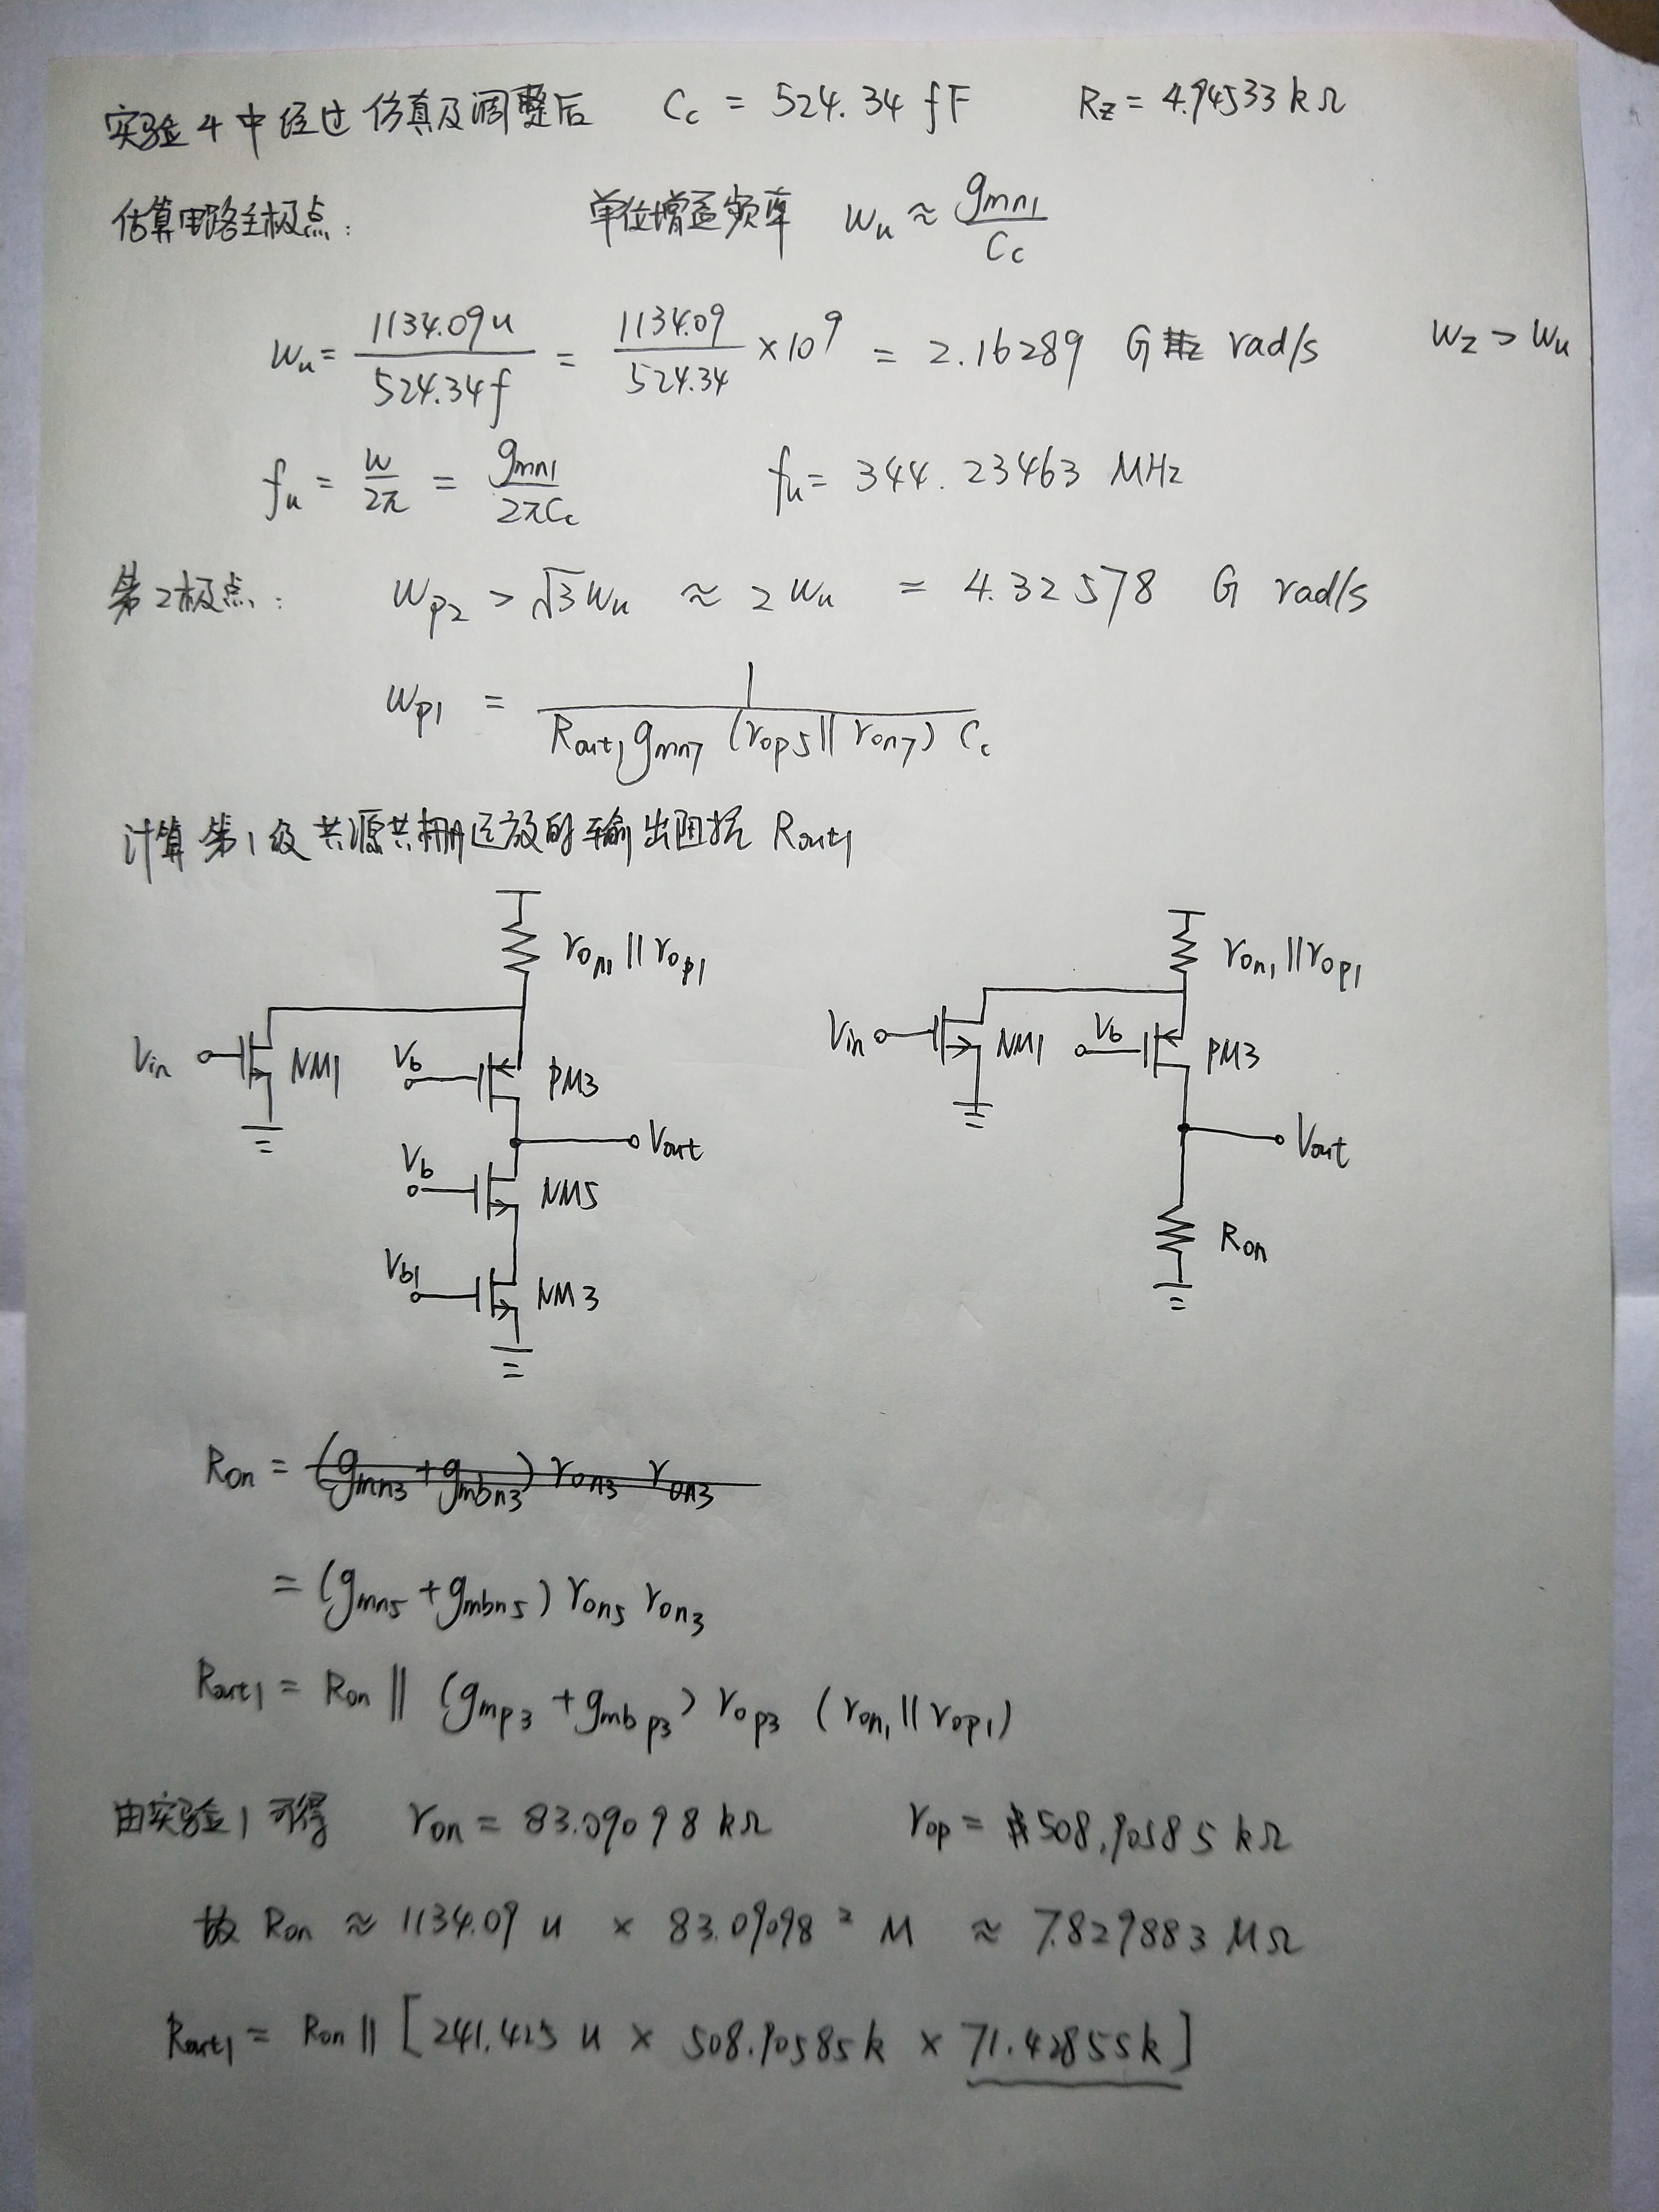 实验4中经过仿真及调整后 Cc = 524.34 fF Rz = 4.94533 kΩ
估算电路主极点: 单位增益频率 Wu ≈ gmn1/Cc
Wu = 1134.09u/524.34f = 1134.09/524.34 ×10⁹ = 2.16289 G rad/s Wz > Wu
fu = W/2π = gmn1/2πCc fu = 344.23463 MHz
第2极点: Wp2 > √3Wu ≈ 2Wu = 4.32578 G rad/s
Wp1 = 1/Rout1gmn7(rop5||ron7)Cc
计算第1级共源共栅运放的输出阻抗 Rout1
ron1||rop1
Vin NM1 Vb PM3
Vout
Vb NM5
Vb1 NM3
ron1||rop1
Vin NM1 Vb PM3
Vout
Ron
Ron = (gmn3+gmbn3)ron3 ron3
= (gmn5+gmbn5)ron5 ron3
Rout1 = Ron || (gmp3+gmbp3)rop3(ron1||rop1)
由实验1可得 ron = 83.09098 kΩ rop = 508.90585 kΩ
故 Ron ≈ 1134.09 u × 83.09098² M ≈ 7.829883 MΩ
Rout1 = Ron || [241.425 u × 508.90585k × 71.42855k]